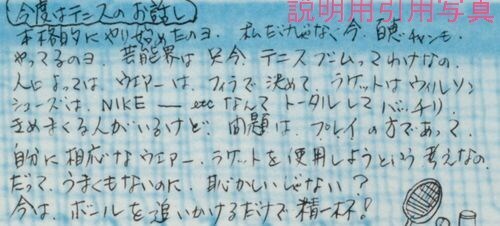 今度はテニスのお話し
説明用引用写真
本格的にやり始めたのヨ。私だけじゃなく今、聰チャンも、
やってるのヨ。芸能界は只今、テニスブームってわけなの。
人によっては、ウェアーは、フィラで決めて、ラケットはウィルソン
シューズは、NIKE — etc なんてトータルしてバッチリ
きめまくる人がいるけど、問題は、プレイの方であって、
自分に相応なウェアー、ラケットを使用しようという考えなの。
だって、うまくもないのに、恥かしいじゃない?
今は、ボールを追いかけるだけで精一杯!